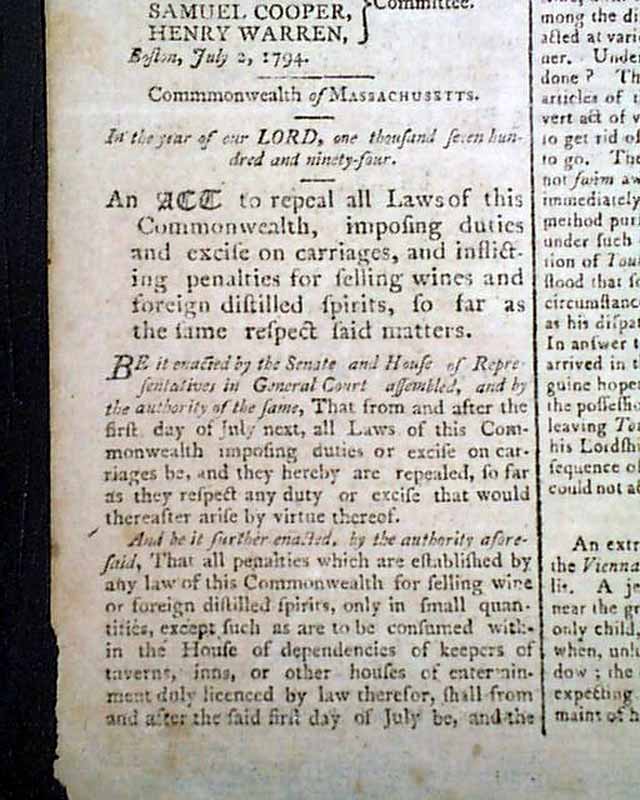 SAMUEL COOPER,
HENRY WARREN,
} Committee.
Boſton, July 2, 1794.
Commmonwealth of MASSACHUSETTS.
In the year of our LORD, one thouſand ſeven hun-
dred and ninety-four.
An ACT to repeal all Laws of this
Commonwealth, impoſing duties
and exciſe on carriages, and inflict-
ing penalties for ſelling wines and
foreign diſtilled ſpirits, ſo far as
the ſame reſpect ſaid matters.
BE it enacted by the Senate and Houſe of Repre-
ſentatives in General Court aſſembled, and by
the authority of the ſame, That from and after the
firſt day of July next, all Laws of this Com-
monwealth impoſing duties or exciſe on car-
riages be, and they hereby are repealed, ſo far
as they reſpect any duty or exciſe that would
thereafter ariſe by virtue thereof.
And be it further enacted, by the authority afore-
ſaid, That all penalties which are eſtabliſhed by
any law of this Commonwealth for ſelling wine
or foreign diſtilled ſpirits, only in ſmall quan-
tities, except ſuch as are to be conſumed with-
in the Houſe of dependencies of keepers of
taverns, inns, or other houſes of entertain-
ment duly licenced by law therefor, ſhall from
and after the ſaid firſt day of July be, and the
mong the
acted at
ner. Under
done ? Th
articles of
vert act of
to get rid of
to go. The
not ſwim
immediately
method
under ſuch
tion of
ſtood that
circumſtanc
as his diſpat
In anſwer t
arrived in t
guine hope
the poſſeſſio
leaving
his Lordſhi
ſequence of
could not
An extr
the Vienna
lit. A je
near the gr
only child,
when,
dow ; the
expecting
maint of h